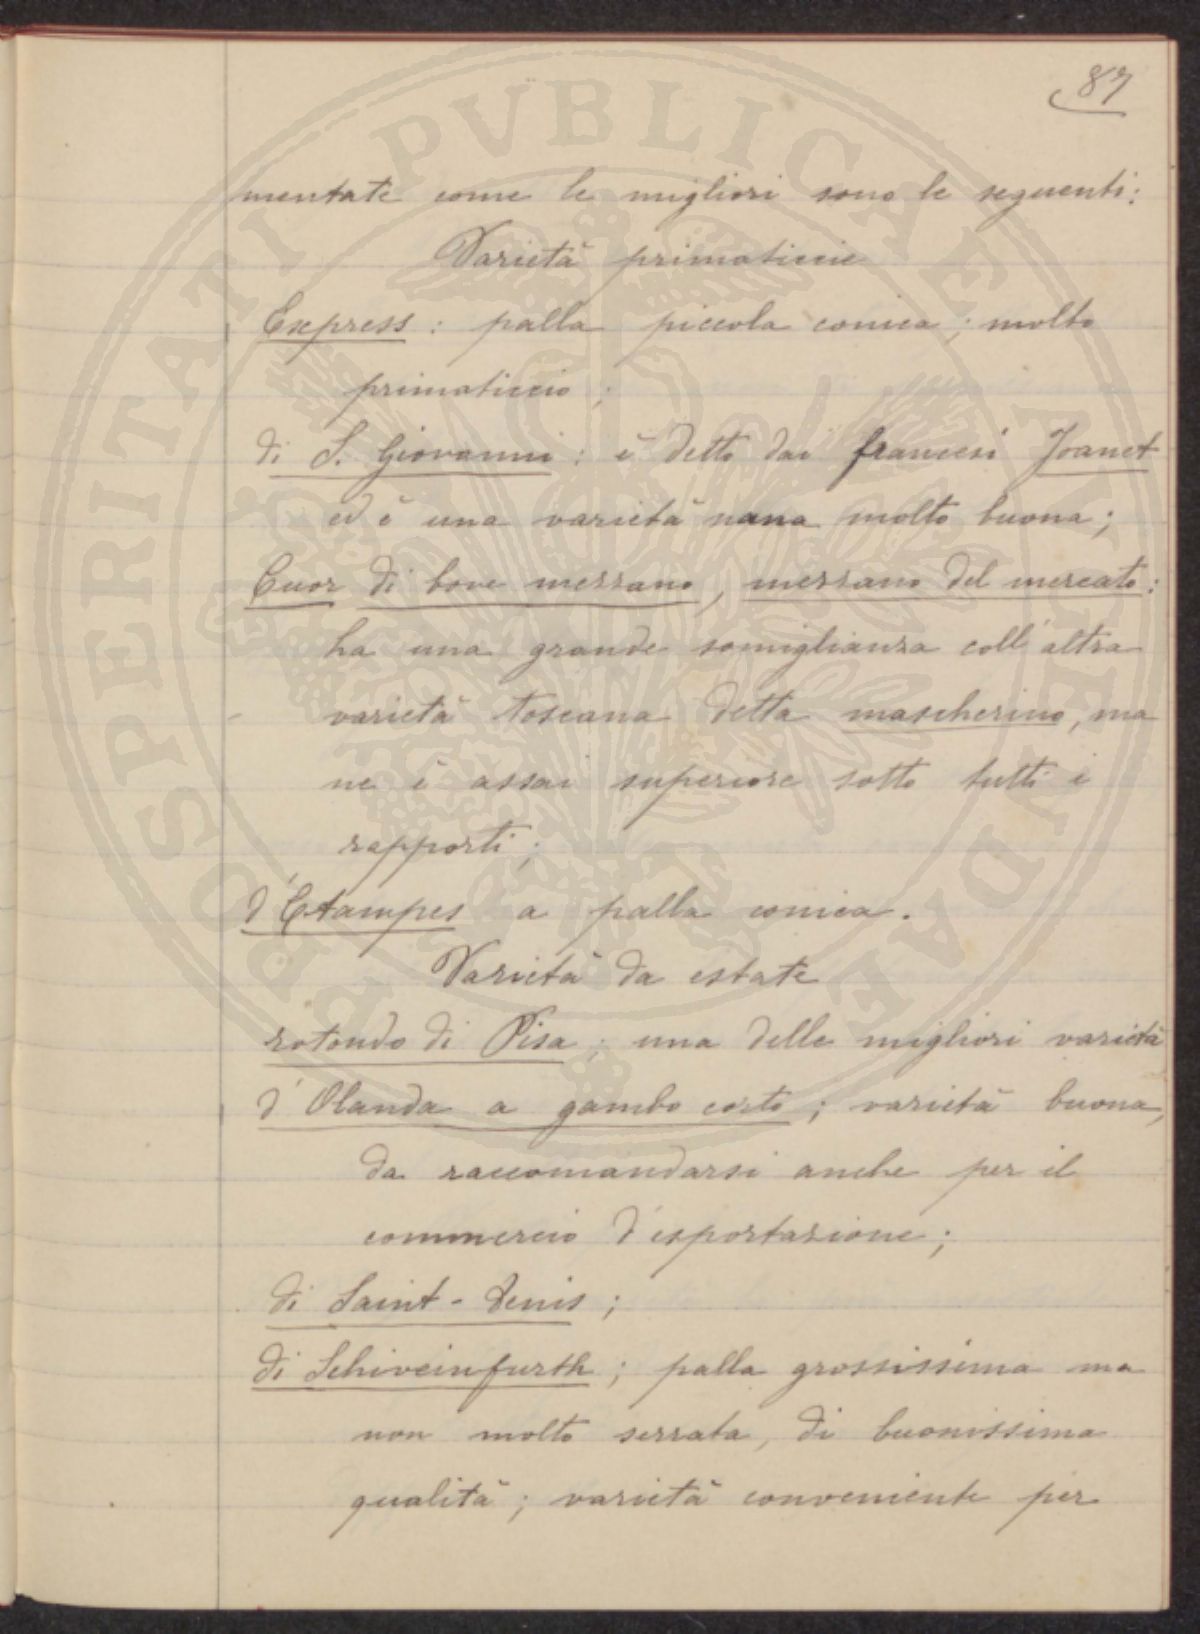 87
mentate come le migliori sono le seguenti:
Varietà primaticcie
Express: palla piccola conica; molto
primaticcio;
di S. Giovanni: è detto dai francesi Joanet
ed è una varietà nana molto buona;
Cuor di bove mezzano, mezzano del mercato:
ha una grande somiglianza coll'altra
varietà toscana detta mascherino, ma
ne è assai superiore sotto tutti i
rapporti;
d'Etampes a palla conica.
Varietà da estate
rotondo di Pisa; una delle migliori varietà
d'Olanda a gambo corto; varietà buona,
da raccomandarsi anche per il
commercio d'esportazione;
di Saint-Denis;
di Schiveinfurth; palla grossissima ma
non molto serrata, di buonissima
qualità; varietà conveniente per
PROSPERITATI PVBLICAE AVGENDAE